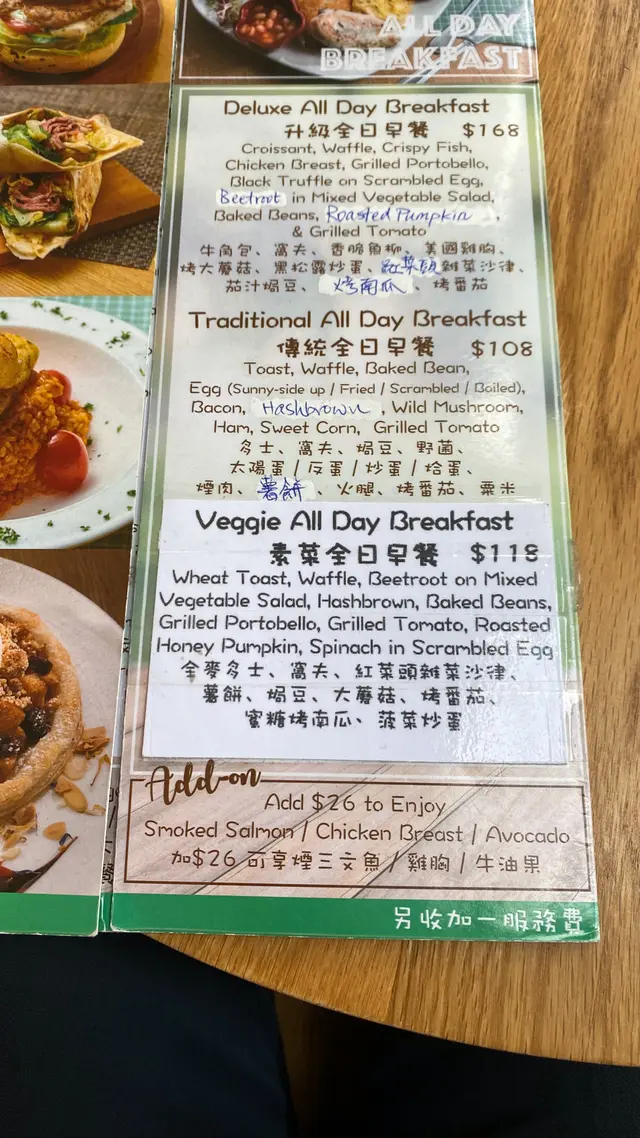 ALL DAY
BREAKFAST
Deluxe All Day Breakfast
升級全日早餐 $168
Croissant, Waffle, Crispy Fish,
Chicken Breast, Grilled Portobello,
Black Truffle on Scrambled Egg,
Beetroot in Mixed Vegetable Salad,
Baked Beans, Roasted Pumpkin ,
& Grilled Tomato
牛角包、窩夫、香脆魚柳、美國雞胸、
烤大蘑菇、黑松露炒蛋、紅菜頭雜菜沙律、
茄汁焗豆、烤南瓜、烤番茄
Traditional All Day Breakfast
傳統全日早餐 $108
Toast, Waffle, Baked Bean,
Egg (Sunny-side up / Fried / Scrambled / Boiled),
Bacon, Hashbrown , Wild Mushroom,
Ham, Sweet Corn, Grilled Tomato
多士、窩夫、焗豆、野菌、
太陽蛋 / 反蛋 / 炒蛋 / 烚蛋、
煙肉、薯餅、火腿、烤番茄、粟米
Veggie All Day Breakfast
素菜全日早餐 $118
Wheat Toast, Waffle, Beetroot on Mixed
Vegetable Salad, Hashbrown, Baked Beans,
Grilled Portobello, Grilled Tomato, Roasted
Honey Pumpkin, Spinach in Scrambled Egg
全麥多士、窩夫、紅菜頭雜菜沙律、
薯餅、焗豆、大蘑菇、烤番茄、
蜜糖烤南瓜、菠菜炒蛋
Add-on
Add $26 to Enjoy
Smoked Salmon / Chicken Breast / Avocado
加$26 可享煙三文魚 / 雞胸 / 牛油果
另收加一服務費